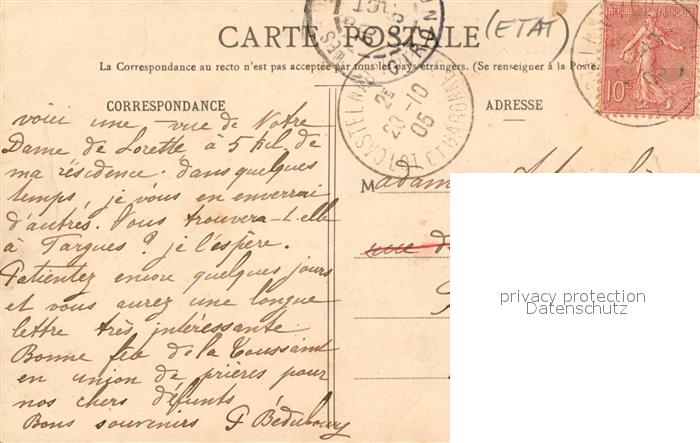 CARTE POSTALE
(ETAT)
La Correspondance au recto n'est pas acceptée par tous les pays étrangers. (Se renseigner à la Poste.
CORRESPONDANCE
voici une vue de Notre
Dame de Lorette à 5 kil. de
ma résidence. dans quelques
temps, je vous en enverrai
d'autres. Vous trouvera-t-elle
à Fargues? je l'espère.
Patientez encore quelques jours
et vous aurez une longue
lettre très intéressante.
Bonne fête de la Toussaint
en union de prières pour
nos chers défunts
Bons souvenirs
ADRESSE
Madame
rue
REPUBLIQUE FRANÇAISE
10
LOT ET GARONNE
2E
29-10
05
privacy protection
Datenschutz